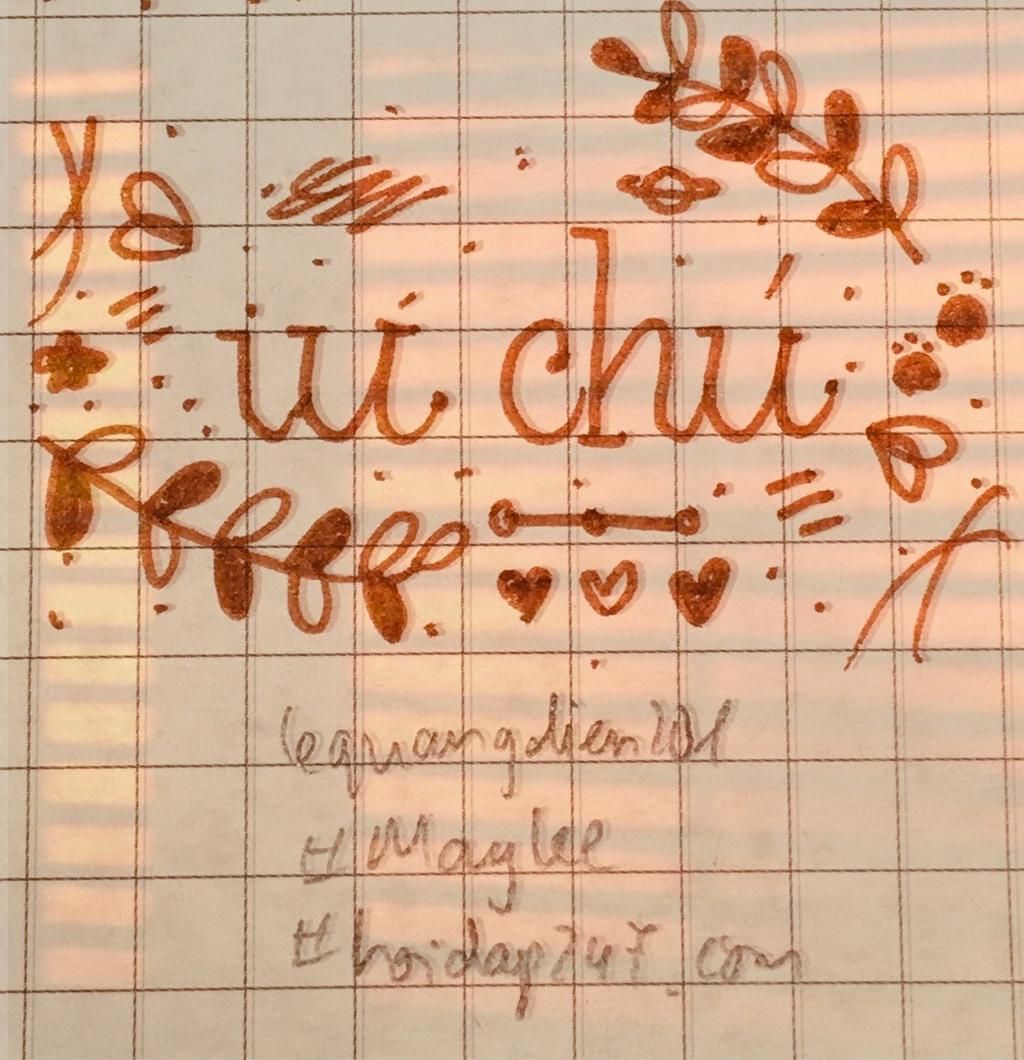 ui chú
lequangdien201
#Maylee
#hoidap247.com